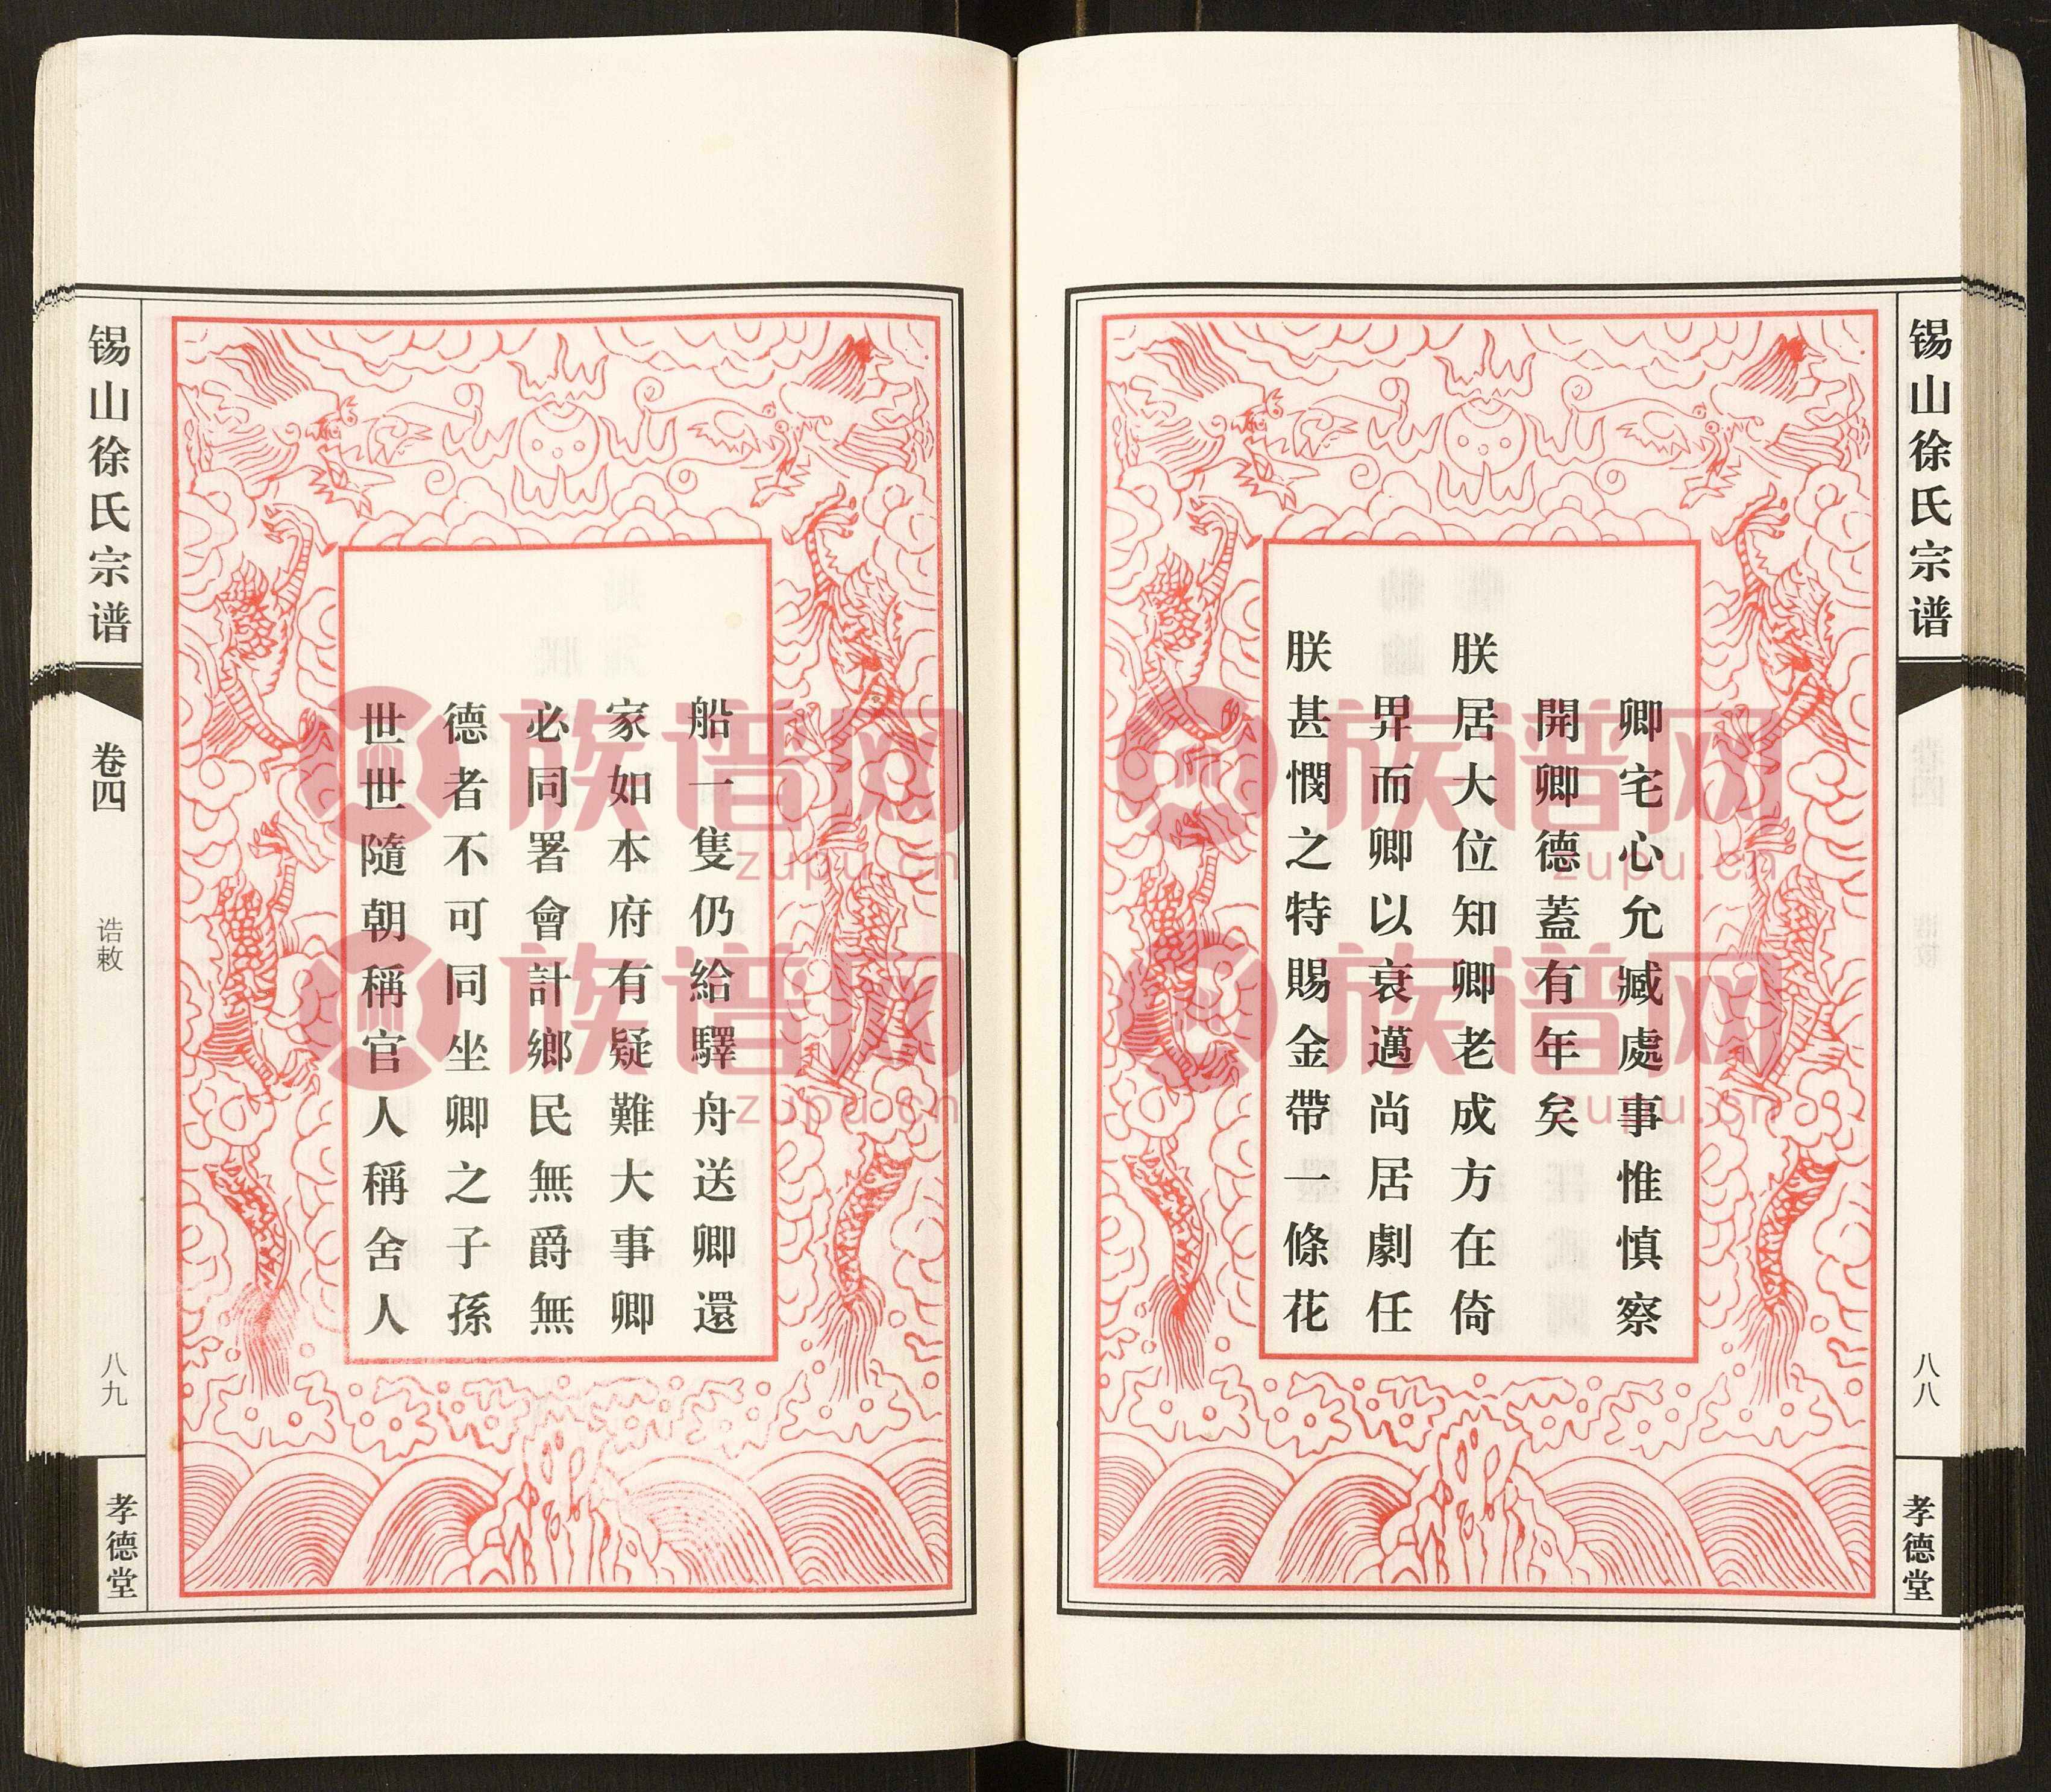 锡山徐氏宗谱
八八
孝德堂
卿宅心允臧處事惟慎察
開卿德蓋有年矣
朕居大位知卿老成方在倚
畀而卿以衰邁尚居劇任
朕甚憫之特賜金帶一條花
船一隻仍給驛舟送卿還
家如本府有疑難大事卿
必同署會計鄉民無爵無
德者不可同坐卿之子孫
世世隨朝稱官人稱舍人
锡山徐氏宗谱
卷四
诰敕
八九
孝德堂
族谱网
zupu.cn
族谱网
zupu.cn
族谱网
zupu.cn
族谱网
zupu.cn